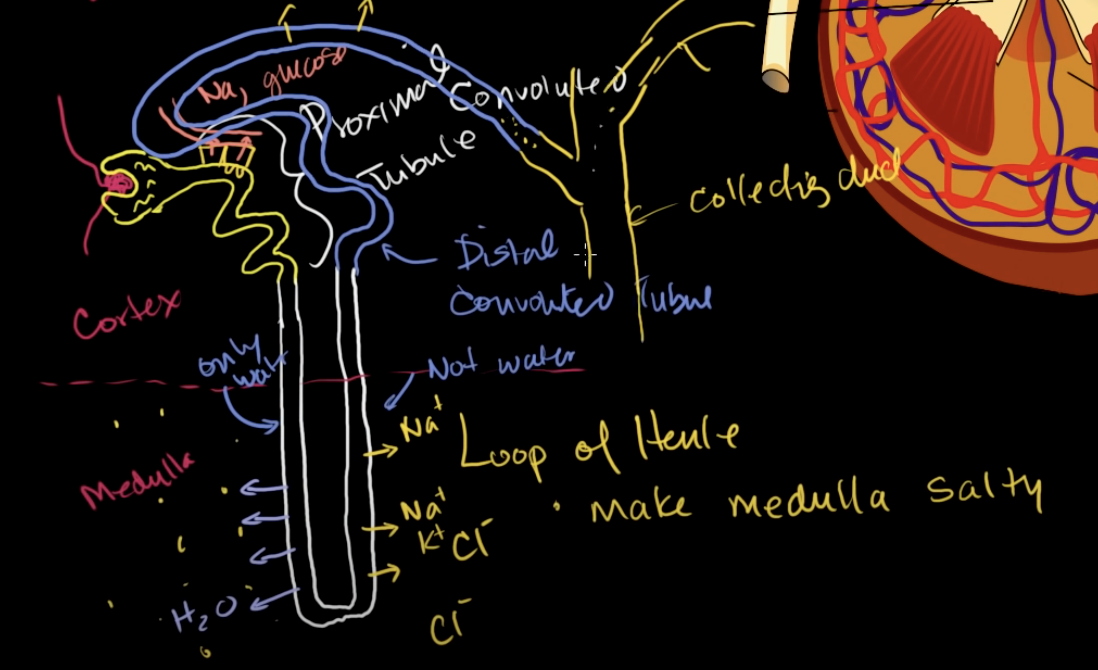 Na, glucose
Proximal Convoluted
Tubule
Collecting duct
Distal
Convoluted Tubule
Cortex
only
water
Not water
Medulla
Na+
Loop of Henle
• Make medulla salty
Na+
K+ Cl-
H2O
Cl-